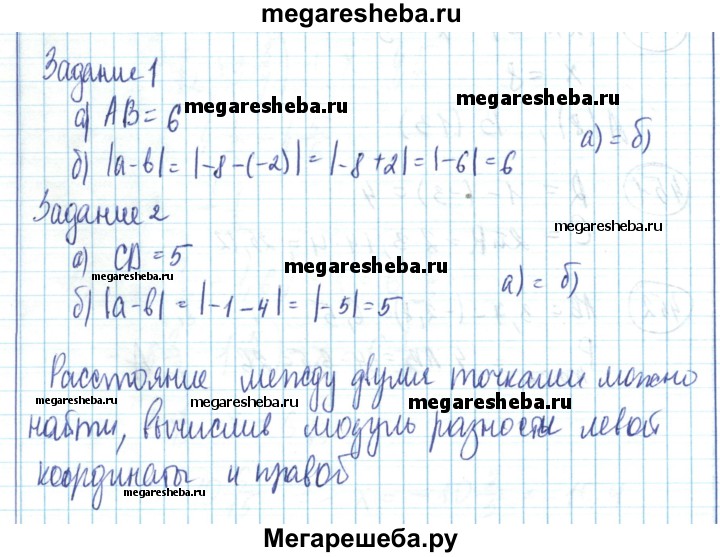 megaresheba.ru
Задание 1
а) AB = 6 megaresheba.ru megaresheba.ru
б) |a-b| = |-8-(-2)| = |-8+2| = |-6| = 6 а) = б)
Задание 2
megaresheba.ru
а) CD = 5 megaresheba.ru
megaresheba.ru
б) |a-b| = |-1-4| = |-5| = 5 а) = б)
Расстояние между двумя точками можно
megaresheba.ru megaresheba.ru megaresheba.ru
найти, вычислив модуль разности левой
координаты и правой
megaresheba.ru
Мегарешеба.ру